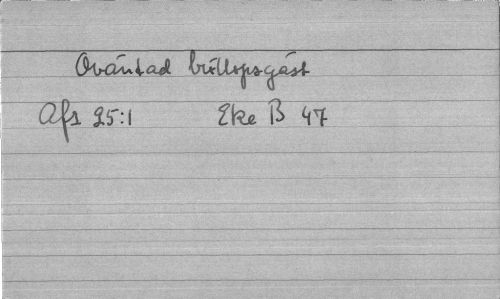 Oväntad bröllopsgäst
Afs 25:1 Eke B 47